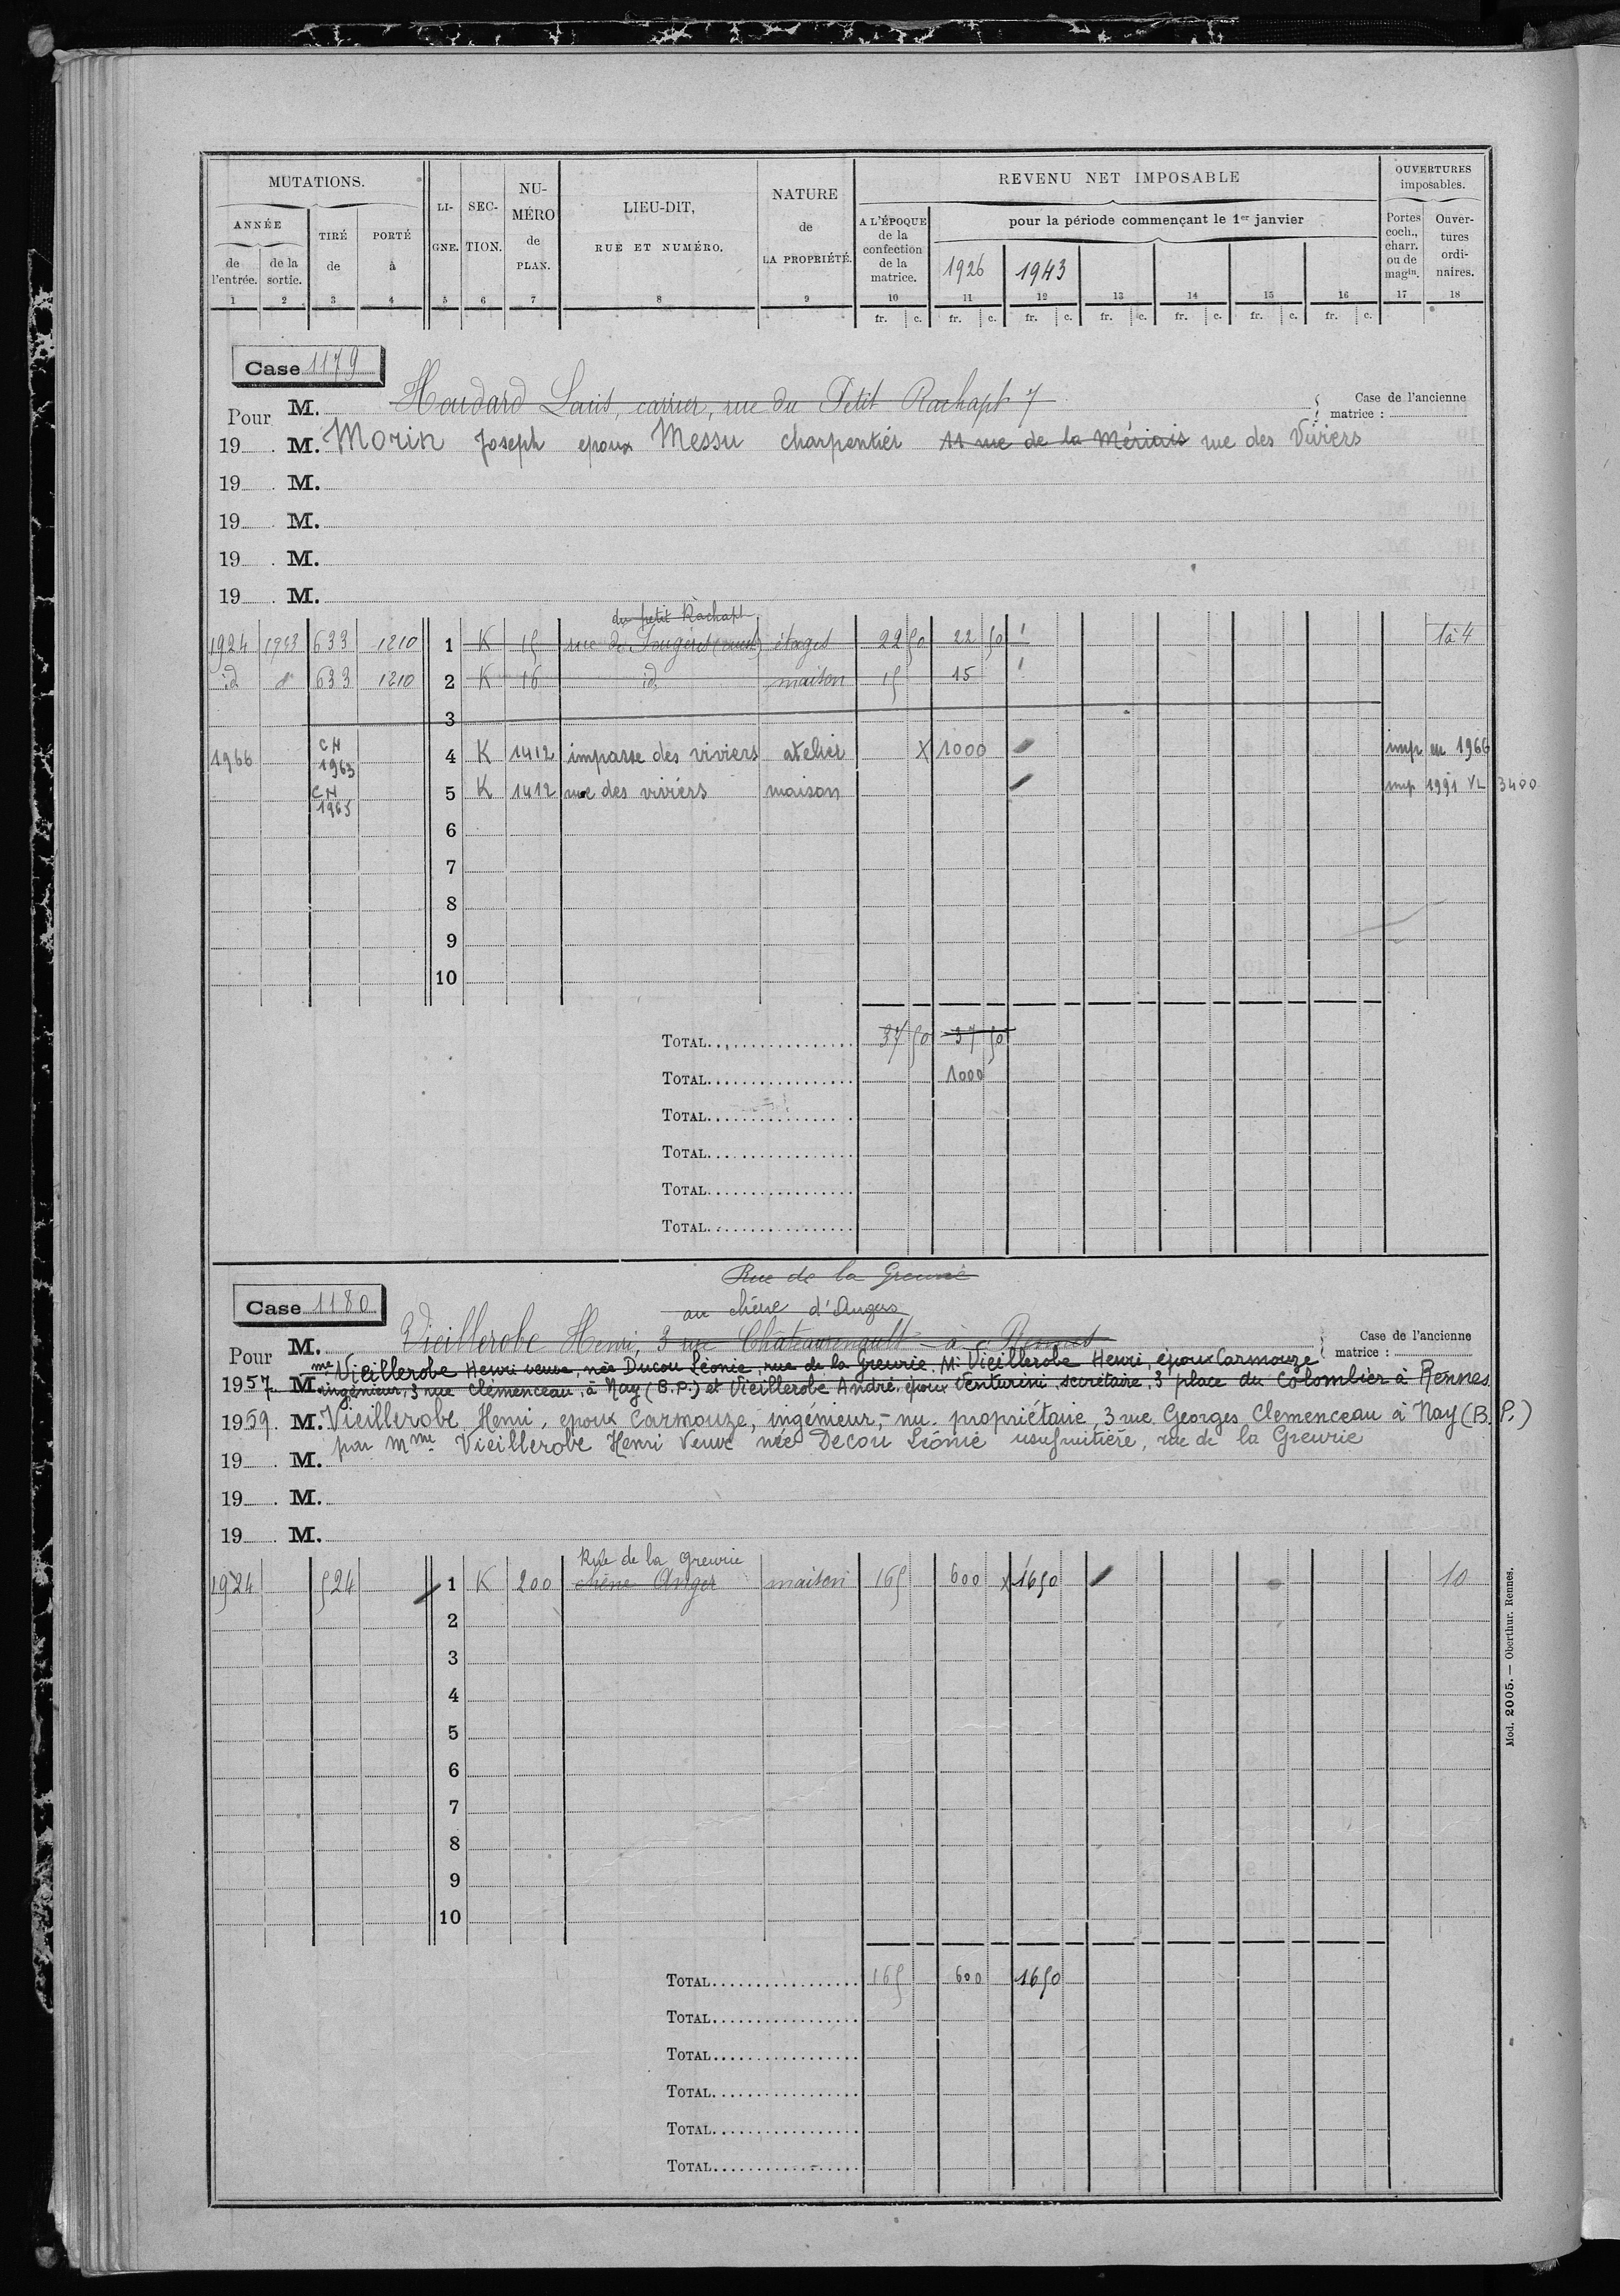 MUTATIONS. LI-GNE. SEC-TION. NU-MÉRO de PLAN. LIEU-DIT, RUE ET NUMÉRO. NATURE de LA PROPRIÉTÉ. REVENU NET IMPOSABLE OUVERTURES imposables.
ANNÉE TIRÉ de PORTÉ à A L'ÉPOQUE de la confection de la matrice. pour la période commençant le 1er janvier Portes coch., charr. ou de magin. Ouver-tures ordi-naires.
de l'entrée. de la sortie. 1926 1943
1 2 3 4 5 6 7 8 9 10 11 12 13 14 15 16 17 18
fr. c. fr. c. fr. c. fr. c. fr. c. fr. c. fr. c.
Case 1179
Pour M. Houdard Louis, carrier, rue du Petit Rachapt 7 Case de l'ancienne matrice :
19 M. Morin Joseph epoux Messu charpentier 11 rue de la Mériais rue des Viviers
19 M.
19 M.
19 M.
19 M.
du petit Rachapt
1924 1943 633 1210 1 K 15 rue de Fougères étages 22 50 22 50 1 à 4
id d° 633 1210 2 K 16 id maison 15 15
3
1966 CH 1963 4 K 1412 impasse des viviers atelier X 1000 imp en 1966
CH 1965 5 K 1412 rue des viviers maison imp 1991 VL 3400
6
7
8
9
10
TOTAL 37 50 37 50
TOTAL 1000
TOTAL
TOTAL
TOTAL
TOTAL
Rue de la Greurie
Case 1180 au chêne d'Angers
Pour M. Vieillerobe Henri, 3 rue Chateaurenault à Rennes Case de l'ancienne matrice :
me Vieillerobe Henri veuve, née Ducou Léonie, rue de la Greurie. M. Vieillerobe Henri, époux Carmouze
1957. M. ingénieur, 3 rue Clémenceau, à Nay (B.P.) et Vieillerobe André, époux Venturini, secrétaire, 3 place du Colombier à Rennes
1959. M. Vieillerobe Henri, epoux Carmouze, ingénieur, nu. propriétaire, 3 rue Georges Clemenceau à Nay (B.P.)
par Mme Vieillerobe Henri Veuve née Decou Léonie usufruitière, rue de la Greurie
19 M.
19 M.
19 M.
Rue de la Greurie
1924 524 1 K 200 chêne Anger maison 165 600 x 1650 10
2
3
4
5
6
7
8
9
10
TOTAL 165 600 1650
TOTAL
TOTAL
TOTAL
TOTAL
TOTAL
Mod. 2005. — Oberthur. Rennes.